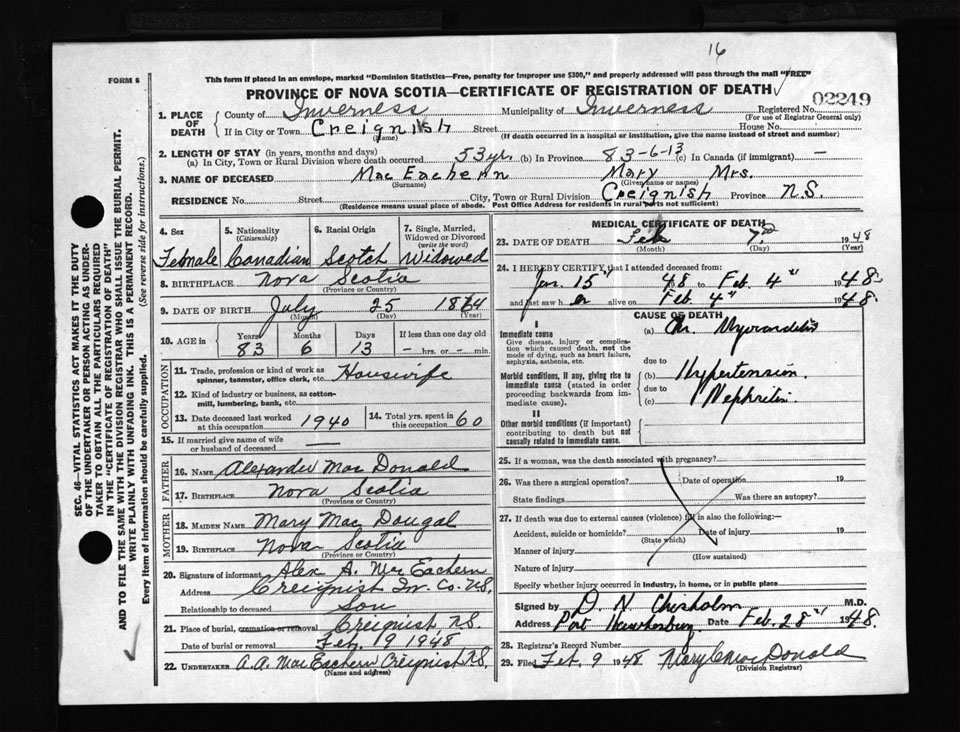 16
FORM 6
This form if placed in an envelope, marked "Dominion Statistics—Free, penalty for improper use $300," and properly addressed will pass through the mail "FREE"
PROVINCE OF NOVA SCOTIA—CERTIFICATE OF REGISTRATION OF DEATH
02249
1. PLACE OF DEATH County of Inverness Municipality of Inverness Registered No.
(For use of Registrar General only)
If in City or Town Creignish Street House No.
(Name) (If death occurred in a hospital or institution, give the name instead of street and number)
2. LENGTH OF STAY (in years, months and days)
(a) In City, Town or Rural Division where death occurred 53 yrs. (b) In Province 83-6-13 (c) In Canada (if immigrant) —
3. NAME OF DECEASED Mac Eachern Mary Mrs.
(Surname) (Given name or names)
RESIDENCE No. Street City, Town or Rural Division Creignish Province N.S.
(Residence means usual place of abode. Post Office Address for residents in rural parts not sufficient)
4. Sex 5. Nationality (Citizenship) 6. Racial Origin 7. Single, Married, Widowed or Divorced (write the word)
Female Canadian Scotch Widowed
8. BIRTHPLACE Nova Scotia
(Province or Country)
9. DATE OF BIRTH July 25 1864
(Month) (Day) (Year)
10. AGE in Years Months Days If less than one day old
83 6 13 — hrs. or — min.
OCCUPATION
11. Trade, profession or kind of work as spinner, teamster, office clerk, etc. Housewife
12. Kind of industry or business, as cotton-mill, lumbering, bank, etc.
13. Date deceased last worked at this occupation 1940 14. Total yrs. spent in this occupation 60
15. If married give name of wife or husband of deceased
FATHER
16. NAME Alexander Mac Donald
17. BIRTHPLACE Nova Scotia
(Province or Country)
MOTHER
18. MAIDEN NAME Mary Mac Dougal
19. BIRTHPLACE Nova Scotia
(Province or Country)
20. Signature of informant Alex A. Mac Eachern
Address Creignist In. Co. N.S.
Relationship to deceased Son
21. Place of burial, cremation or removal Creignist N.S.
Date of burial or removal Feb, 19 1948
22. UNDERTAKER A. A. Mac Eachern Creignist N.S.
(Name and address)
MEDICAL CERTIFICATE OF DEATH
23. DATE OF DEATH Feb 7 1948
(Month) (Day) (Year)
24. I HEREBY CERTIFY that I attended deceased from:
Jan. 15" 48 to Feb. 4" 1948
and last saw her alive on Feb. 4" 1948.
CAUSE OF DEATH
I
Immediate cause
Give disease, injury or complication which caused death, not the mode of dying, such as heart failure, asphyxia, asthenia, etc.
(a) Chr. Myocarditis
due to
Morbid conditions, if any, giving rise to immediate cause (stated in order proceeding backwards from immediate cause).
(b) Hypertension
due to
(c) Nephritis
II
Other morbid conditions (if important) contributing to death but not causally related to immediate cause.
25. If a woman, was the death associated with pregnancy?
26. Was there a surgical operation? Date of operation 19
State findings Was there an autopsy?
27. If death was due to external causes (violence) fill in also the following:—
Accident, suicide or homicide? Date of injury 19
(State which)
Manner of injury
(How sustained)
Nature of injury
Specify whether injury occurred in industry, in home, or in public place
Signed by D. N. Chisholm M.D.
Address Port Hawkesbury Date Feb. 28" 1948.
28. Registrar's Record Number
29. Filed Feb. 9 1948 Mary C Mac Donald
(Division Registrar)
SEC. 46—VITAL STATISTICS ACT MAKES IT THE DUTY
OF THE UNDERTAKER OR PERSON ACTING AS UNDER-
TAKER TO OBTAIN ALL THE PARTICULARS REQUIRED
IN THE "CERTIFICATE OF REGISTRATION OF DEATH"
AND TO FILE THE SAME WITH THE DIVISION REGISTRAR WHO SHALL ISSUE THE BURIAL PERMIT.
WRITE PLAINLY WITH UNFADING INK. THIS IS A PERMANENT RECORD.
Every item of information should be carefully supplied. (See reverse side for instructions.)